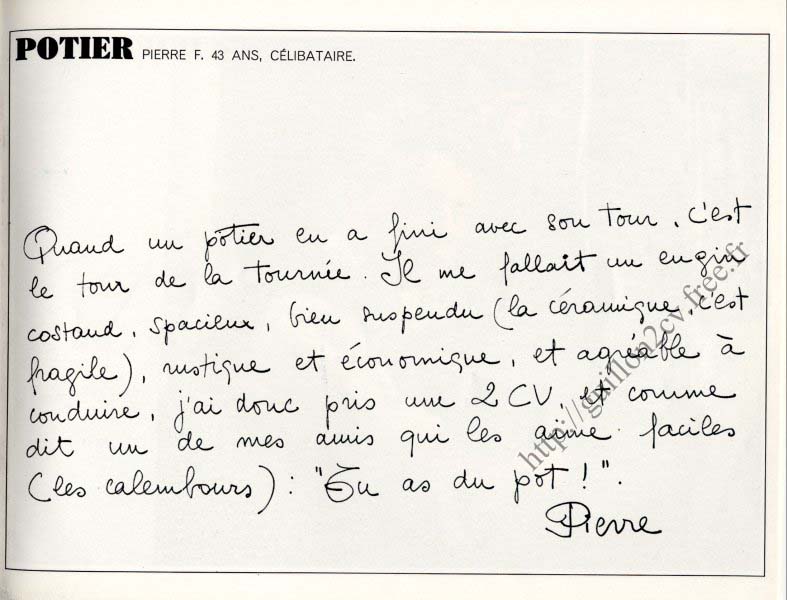 POTIER PIERRE F. 43 ANS, CÉLIBATAIRE.
Quand un pôtier en a fini avec son tour, c'est
le tour de la tournée. Il me fallait un engin
costaud, spacieux, bien suspendu (la céramique, c'est
fragile), rustique et économique, et agréable à
conduire, j'ai donc pris une 2 CV, et comme
dit un de mes amis qui les aime faciles
(les calembours) : "Tu as du pot !".
Pierre
http://guillon2cv.free.fr